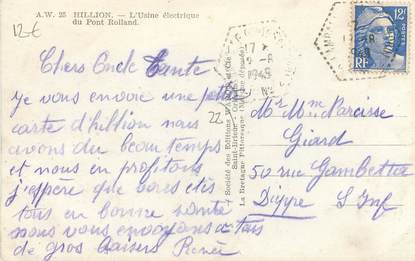 A.W. 25 HILLION. — L'Usine électrique
du Pont Rolland.
12€
Chers Oncle Tante
Je vous envoie une petite
carte d'hillion nous
avons du beau temps
et nous en profitons
j'espère que vous etes
tous en bonne santé
nous vous envoyons a tous
de gros Baisers Renée
22
Société des Editions
Saint-Brieuc
La Bretagne Pittoresque
1949
12F
RF
Mr Mme Narcisse
Giard
50 rue Gambetta
Dieppe S Inf